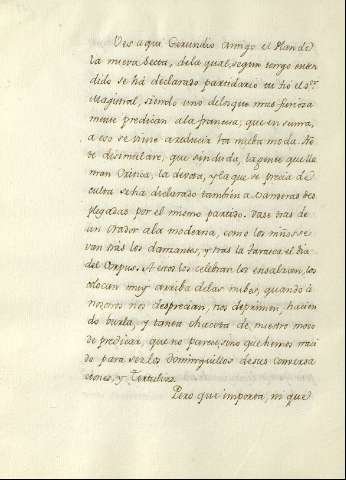 Ves aqui Gerundio amigo el Plan de
la nueva Secta, de la qual, segun tengo enten
dido se há declarado partidario tu tio el Sr
Magistral, siendo uno de los que mas furiosa
mente predican a la francesa; que en suma,
a eso se viene a reducir la mucha moda. No
te disimularè, que sin duda, la gente que lla
man Critica, la devota, y la que se precia de
culta se ha declarado tambien a vanderas des
plegadas por el mismo partido. Vase tras de
un Orador a la moderna, como los niños se
van tras los danzantes, y tras la tarasca el dia
del Corpus. A estos los celebran los ensalzan, los
colocan muy arriba de las nubes, quando à
nosotros nos desprecian, nos deprimen, hacien
do burla, y tanta chacota de nuestro modo
de predicar, que no parece, sino que hemos naci
do para ser los Dominguillos de sus conversa
ciones, y Tertulias.
Pero que importa, ni que